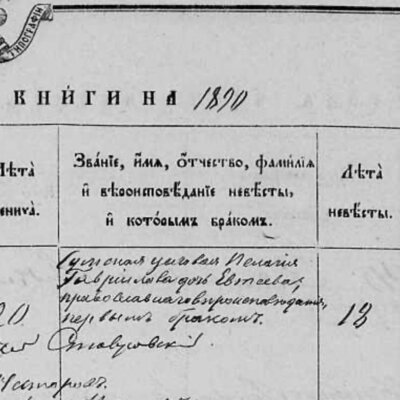 ТИПОГРАФІИ
КНИ́ГИ НА 1890
Лѣта̀
жениха̀.
Зва́ніе, и҆́мѧ, ѻ҆́тчество, фами́лїѧ
и҆ вѣроисповѣ́данїе невѣ́сты,
и҆ кото́рымъ бра́комъ.
Лѣта̀
невѣ́сты.
Сумская цеховая Пелагія
Гавріилова дочь Евтѣева,
православнаго вѣроисповѣданія,
первымъ бракомъ.
20.
18